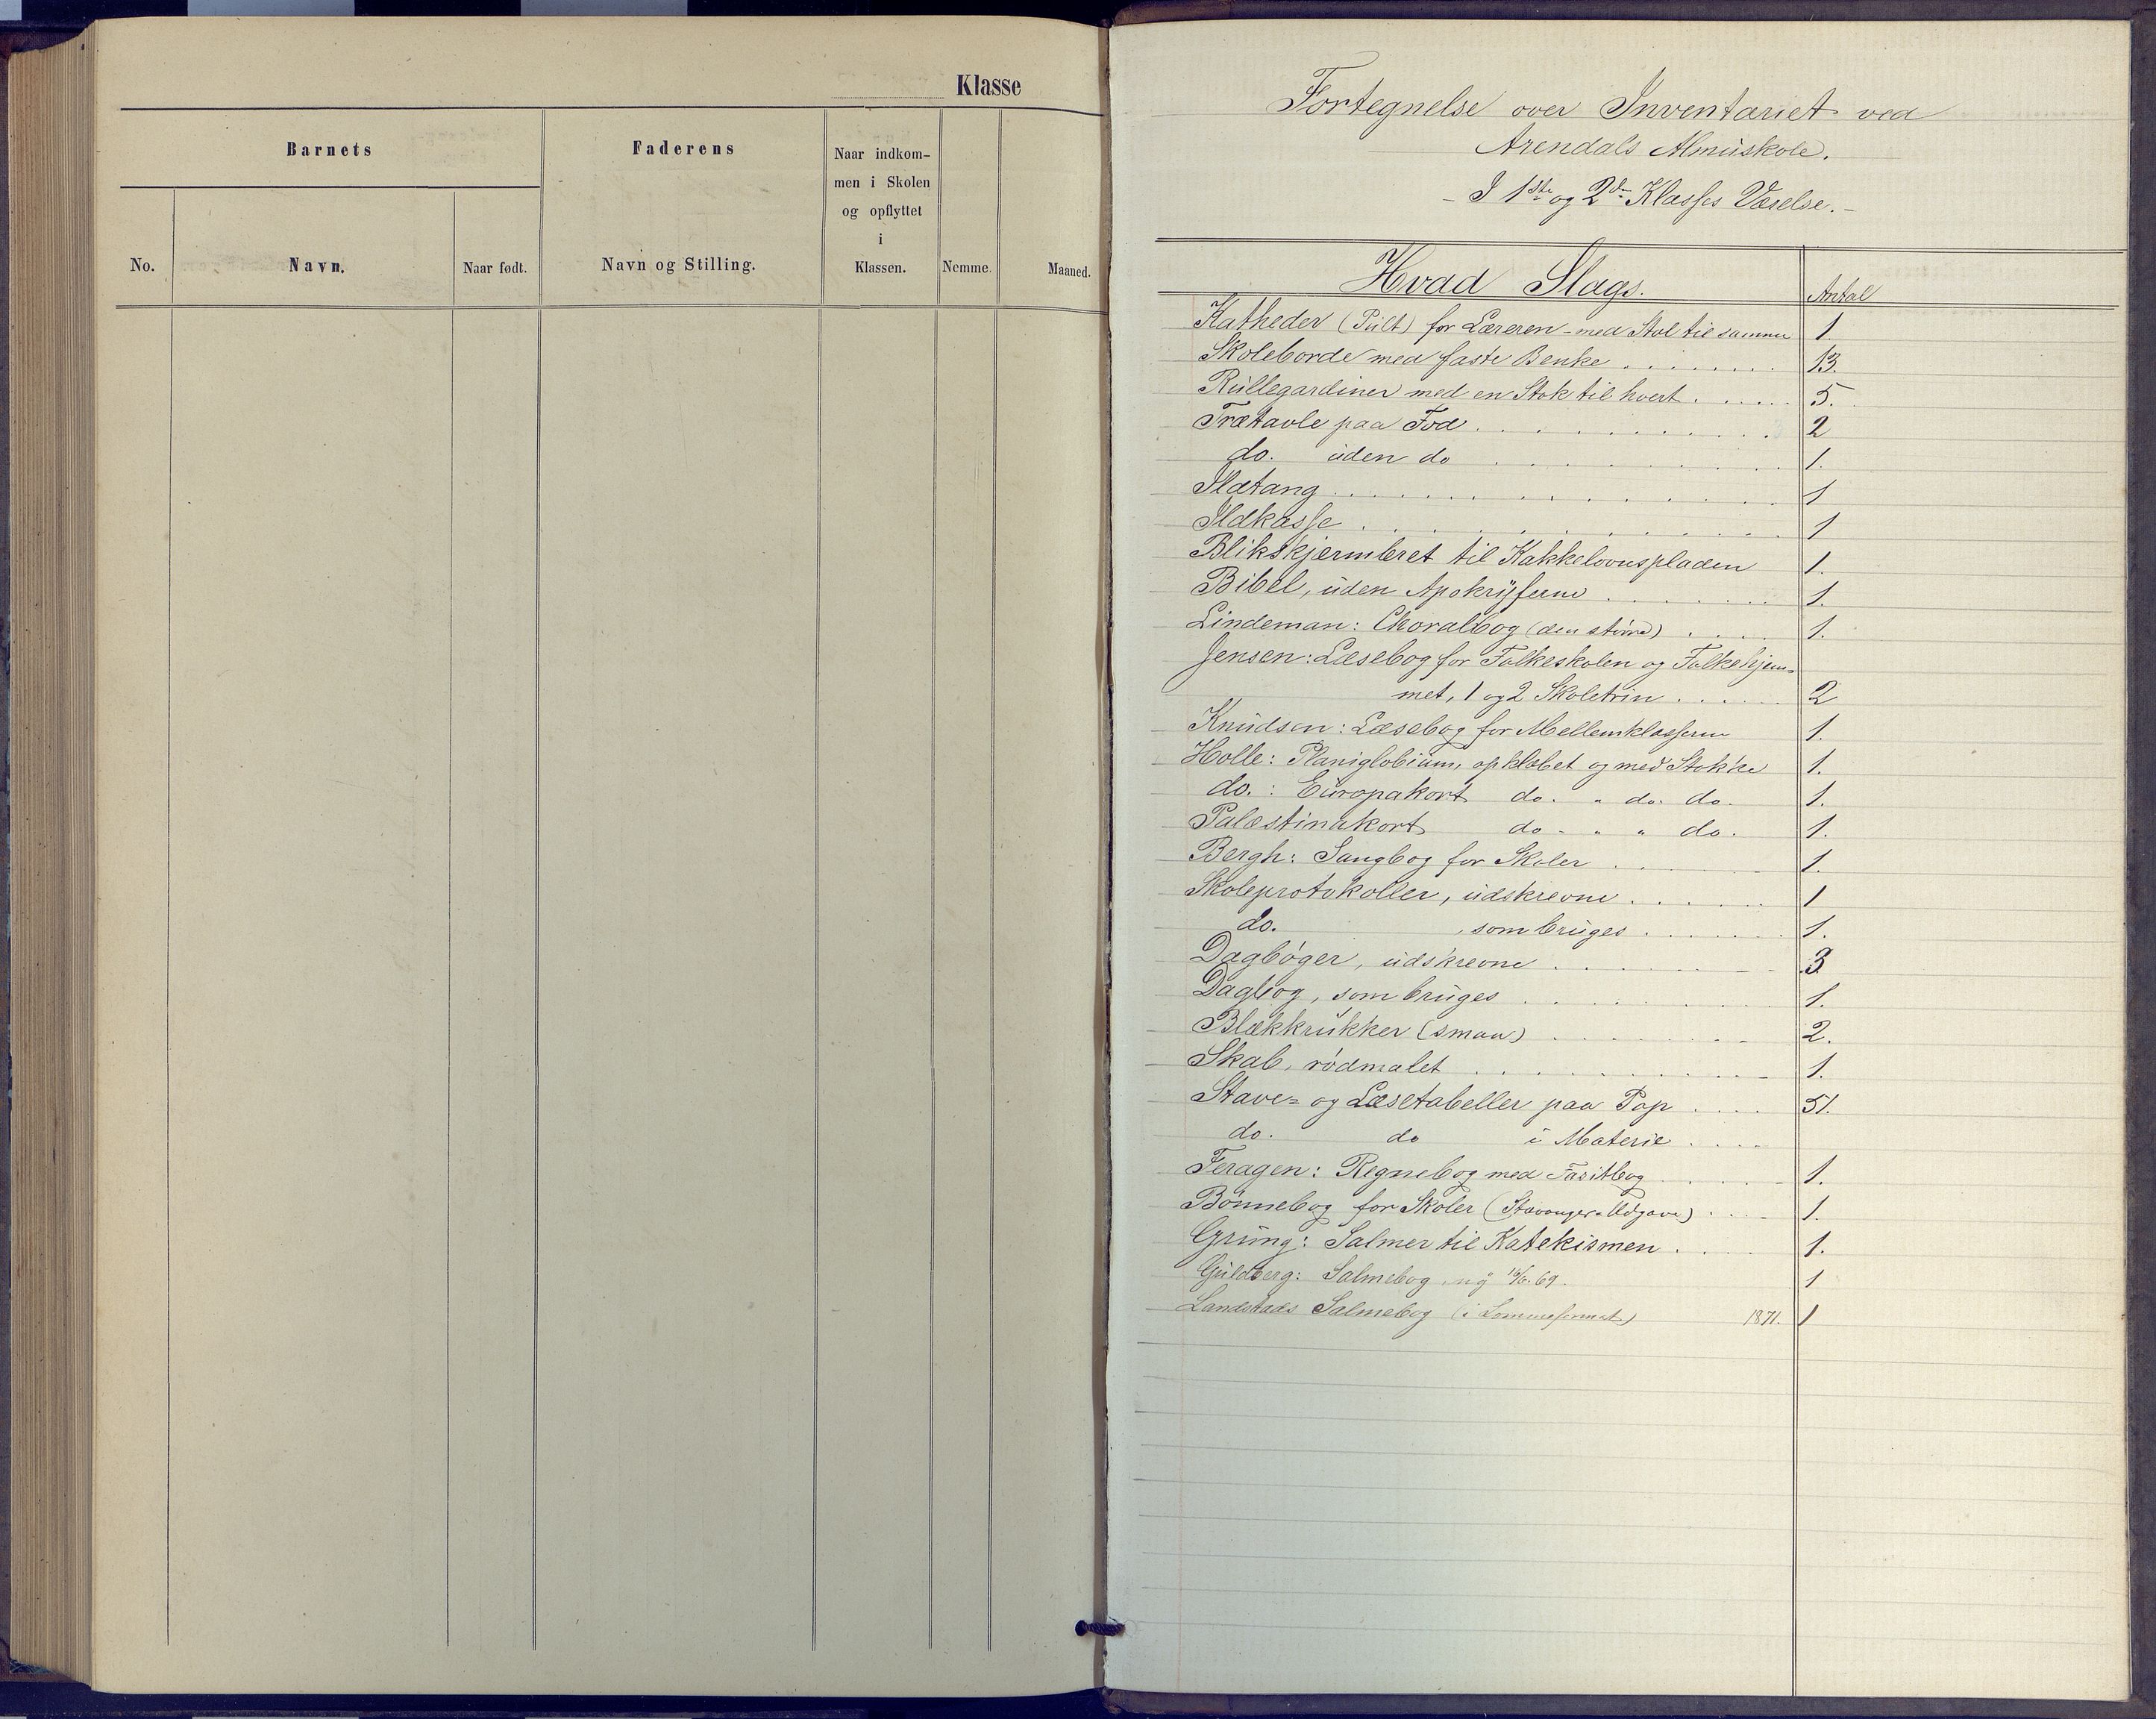 Klasse
Barnets
Faderens
Naar indkom-
men i Skolen
og opflyttet
i
Klassen.
No.
Navn.
Naar født.
Navn og Stilling.
Nemme.
Maaned.
Fortegnelse over Inventariet ved
Arendals Almuskole.
- I 1ste og 2den Klasses Værelse. -
Hvad Slags. Antal
Katheder (Pült) for Læreren - med Stol til samme 1
Skoleborde med faste Benke 13.
Rüllegardiner med en Stok til hvert 5.
Trætavle paa Fod 2
do. üden do 1.
Ildtang 1
Ildkasse 1
Blikskjermbret til Kakkelovnspladen 1.
Bibel, üden Apokryferne 1.
Lindeman: Choralbog (den større) 1.
Jensen: Læsebog for Folkeskolen og Folkehjem-
met, 1 og 2 Skoletrin 2
Knüdsen: Læsebog for Mellemklasserne 1.
Holle: Planiglobium, opklæbet og med Stokke 1.
do. : Europakort do. " do. do. 1.
Palæstinakort do - " " do. 1.
Bergh: Sangbog for Skoler 1.
Skoleprotokoller, üdskrevne 1
do. , som brüges 1.
Dagbøger, üdskrevne 3
Dagbog, som brüges 1.
Blækkrükker (smaa) 2.
Skab, rødmalet 1.
Stave= og Læsetabeller paa Pap 51.
do. do i Materie
Feragen: Regnebog med Facitbog 1.
Bønnebog for Skoler (Stavanger-Udgave) 1.
Grüng: Salmer til Katekismen 1.
Güldberg: Salmebog ny 16/6. 69. 1
Landstads Salmebog (i Lommeformat) 1871. 1